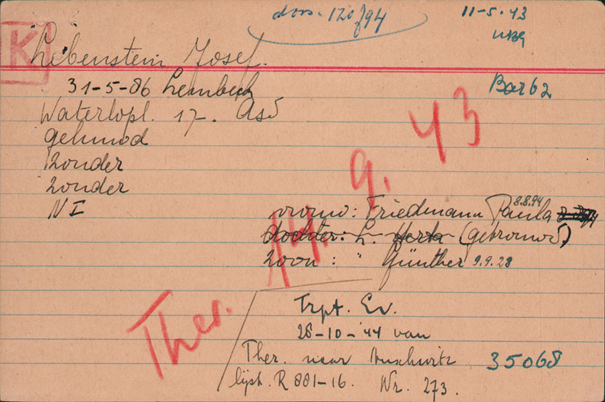 dos. 120/94
11-5.43
K
Libenstein Josef.
31-5-86 Lembeck
Bar 62
Waterlopl. 17. Asd
gehuwd
zonder
zonder
NI
14. 9. 43
vrouw: Friedmann Paula 8.8.94
dochter: L. Herta (getrouwd)
zoon: " Günther 9.9.28
Ther.
Trpt. Ev.
28-10-'44 van
Ther. naar Auschwitz
35068
lijst. R 881-16. Nr. 273.